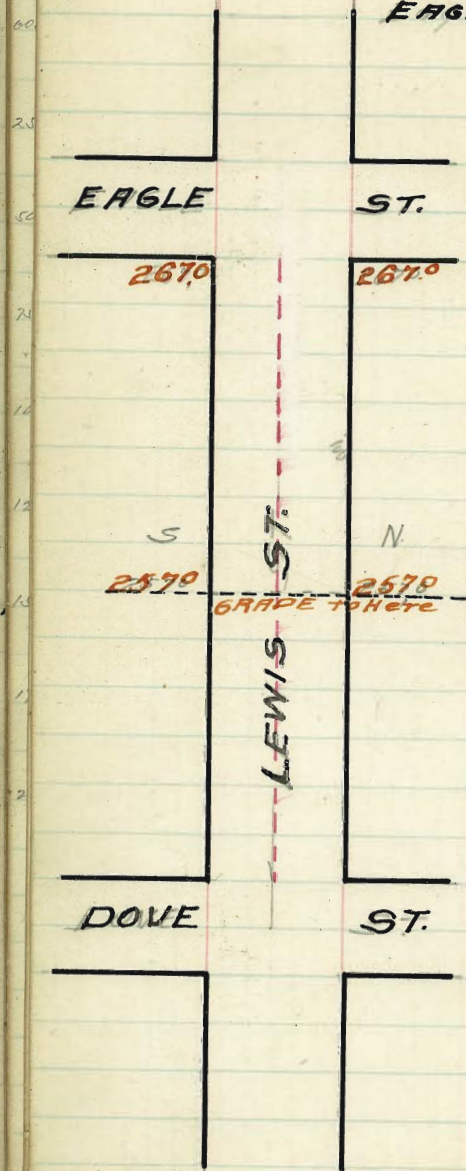 EAG
EAGLE ST.
267.0 267.0
S N
257.0 257.0
GRADE to Here
LEWIS ST.
DOVE ST.